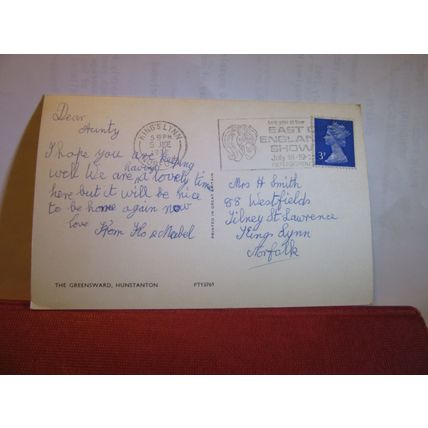 Dear
Aunty
I hope you are keeping
well We are having a lovely time
here but it will be nice
to be home again now
love from Flo & Mabel
KING'S LYNN
NORFOLK
EAST OF
ENGLAND
SHOW
July 18-19-
PETERBOROUGH
3P
PRINTED IN GREAT BRITAIN
Mrs H Smith
88 Westfields
Tilney St Lawrence
Kings Lynn
Norfolk
THE GREENSWARD, HUNSTANTON